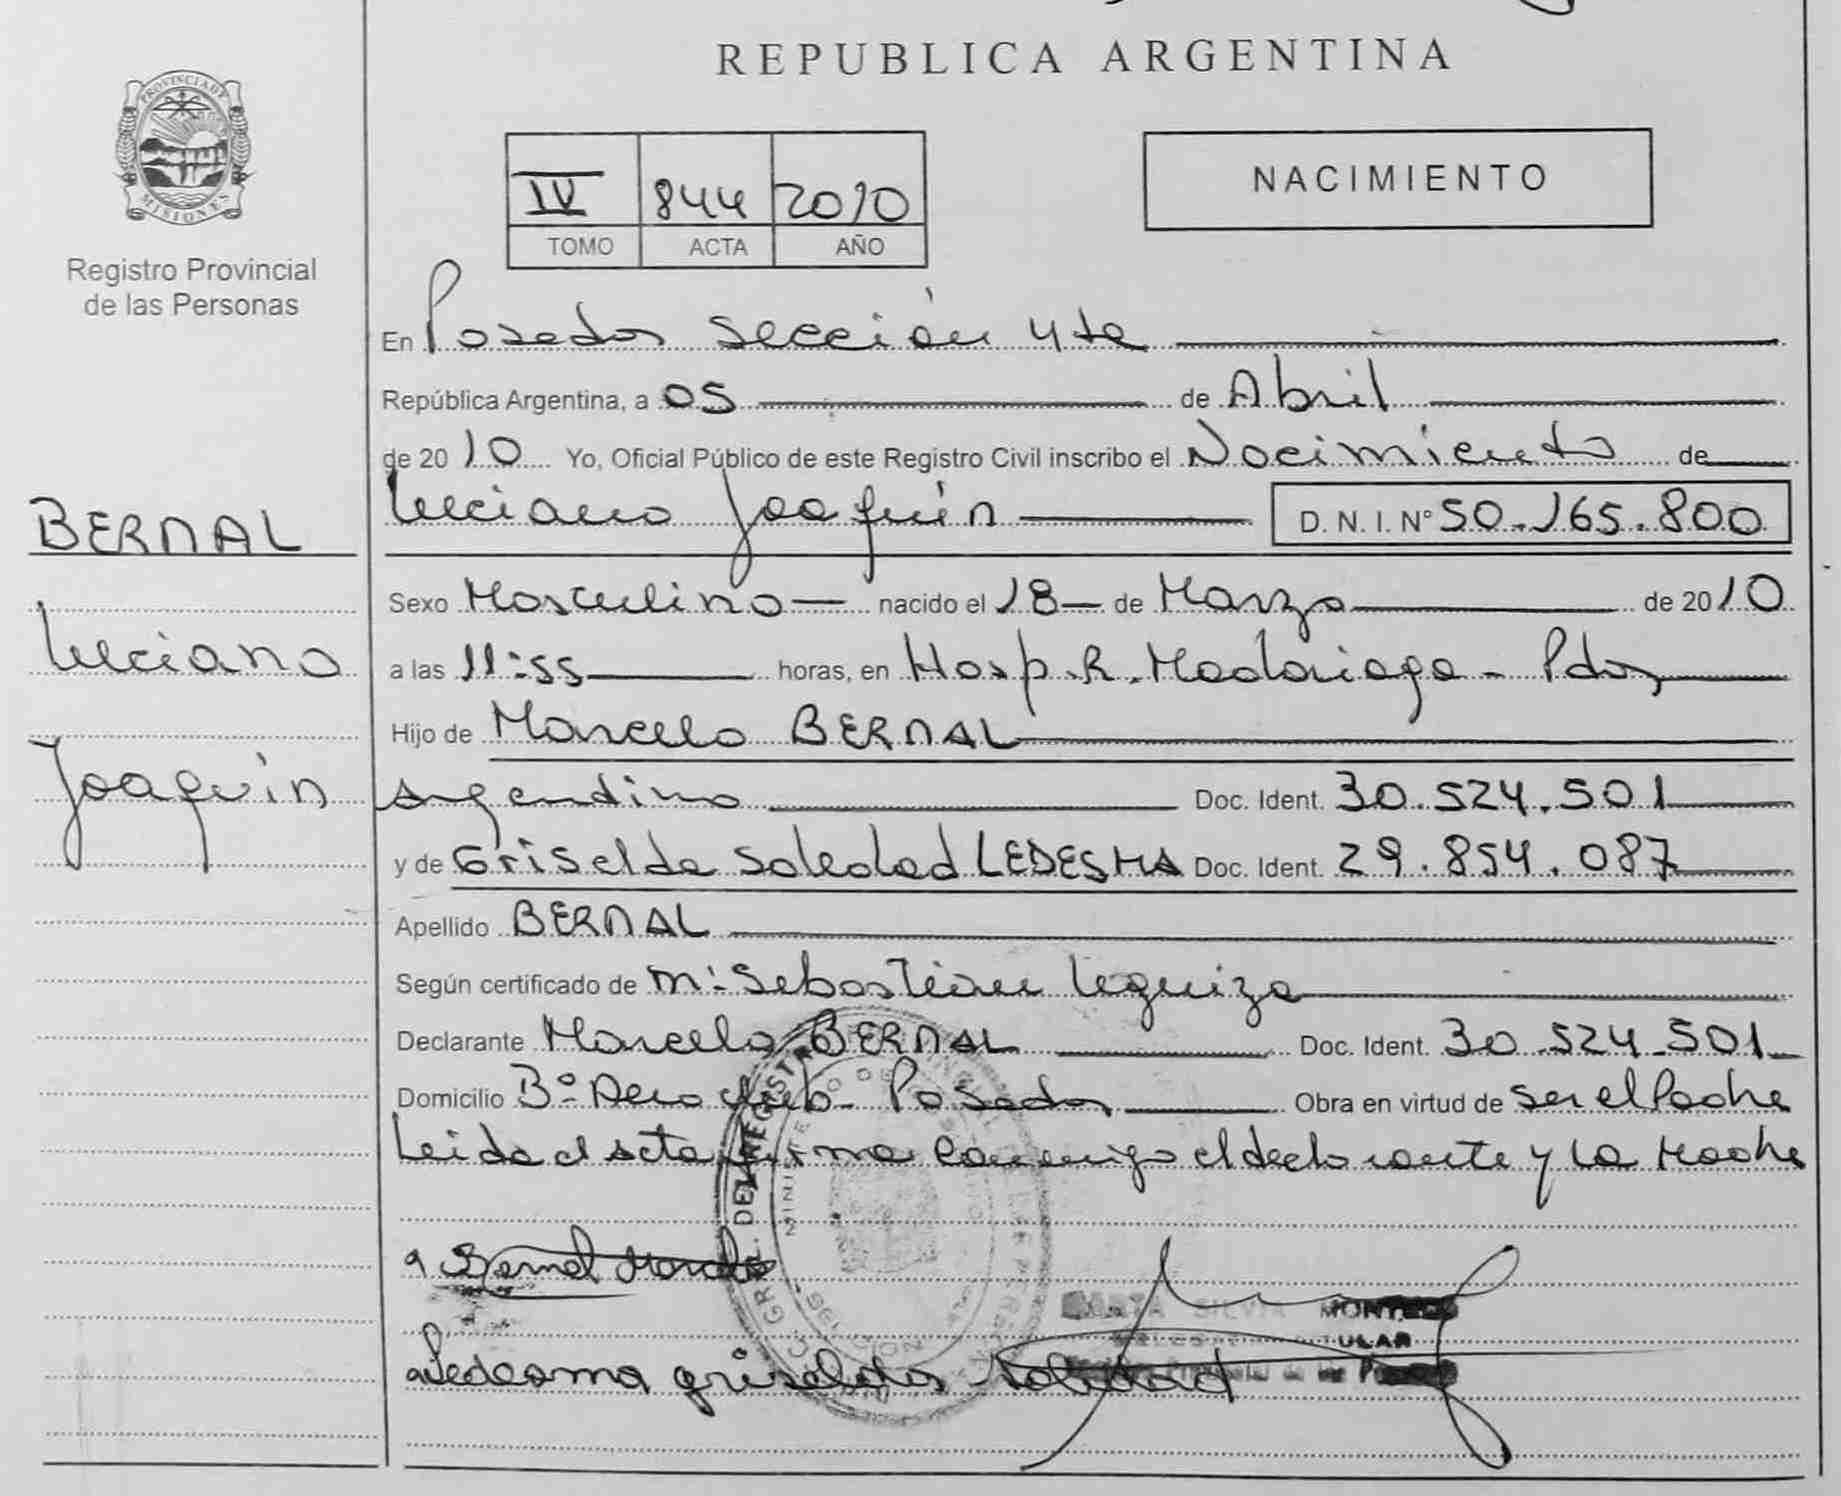 REPUBLICA ARGENTINA
PROVINCIA DE
MISIONES
Registro Provincial
de las Personas
IV 844 2010
TOMO ACTA AÑO
NACIMIENTO
En Posadas sección 4ta
República Argentina, a 05 de Abril
de 2010 Yo, Oficial Público de este Registro Civil inscribo el Nacimiento de
Luciano Joaquín D. N. I. Nº 50.165.800
BERNAL
Luciano
Joaquín
Sexo Masculino nacido el 18 de Marzo de 2010
a las 11:55 horas, en Hosp. R. Madariaga - Pdas
Hijo de Marcelo BERNAL
Argentino Doc. Ident. 30.524.501
y de Griselda Soledad LEDESMA Doc. Ident. 29.854.087
Apellido BERNAL
Según certificado de m: Sebastian Leguiza
Declarante Marcelo BERNAL Doc. Ident. 30.524.501
Domicilio Bº Aero Club - Posadas Obra en virtud de ser el Padre
Leida el acta firma conmigo el declarante y la Madre
Bernal Marcelo
SILVIA MONTE
ULAR
Ledesma griselda soledad